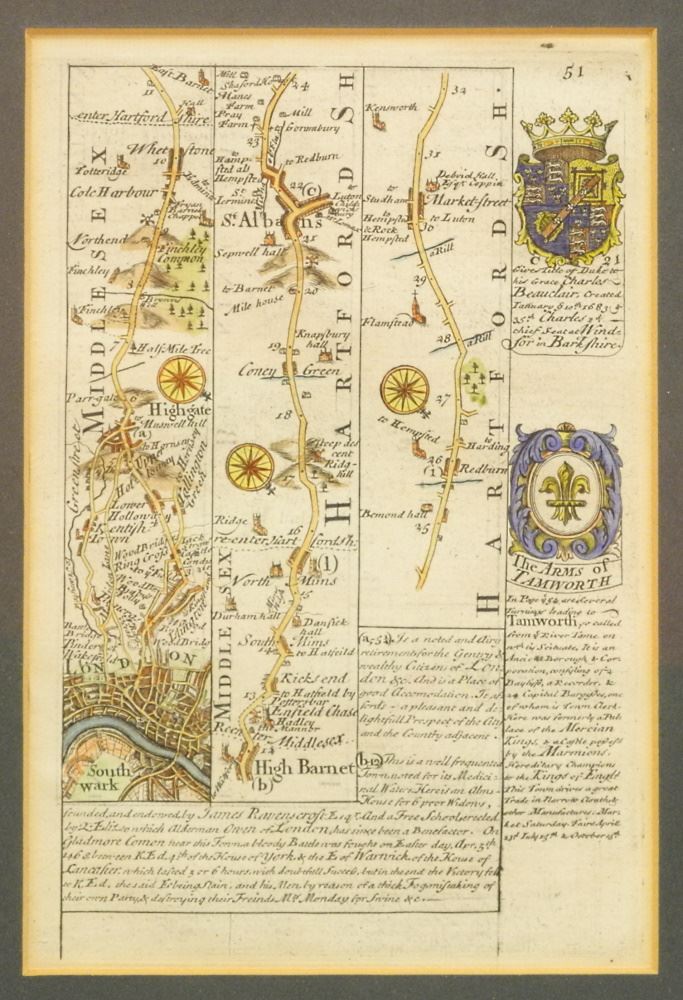 51
East Barnet
11
Hall
enter Hartford Shire
Whetstone
10
Totteridge
Cole Harbour
Northend
Finchley
Common
Finchley
Half Mile Tree
6
Highgate
to Muswell hill
(a)
Upper
Lower
Holloway
Kentish
Town
Islington
LONDON
South
wark
MIDDLESEX
Mill
24
Farm
Pray
Farm
23
Mill
to Gorumbury
to Redburn
to
Hempsted
22
(c)
to
Luton
St. Albans
21
Sopwell hall
20
to Barnet
Mile house
Knapsbury
hall
19
Coney Green
18
Steep des
cent
Ridg-
hill
17
Ridge
16
re-enter Hartfordsh:
(1)
North Mims
15
Durham hall
Dansick
hall
to Hatfeild
South Mims
14
Kicks end
to Hatfield by
Potters bar
Enfield Chase
13
Hadley
Middlesex
High Barnet
(b)
MIDDLESEX
HARTFORDSH
32
Kensworth
31
Market-street
to
Studham
to Luton
30
to
Hempsted
& Rock
Hempsted
a Rill
29
Flamsted
28
a Rill
27
to Hempsted
to
Harding
26
(1)
Redburn
Bemond hall
25
HARTFORDSH.
21
Gives Title of Duke to
his Grace Charles
Beauclair, Created
chief Seat at Wind=
sor in Barkshire.
The ARMS of
TAMWORTH
In Page ye 52 are several
Turnings leading to
Tamworth, so called
from ye River Tame on
wch is Scituate, It is an
Ancient Borough & Cor=
poration, consisting of 2
Bayliffs, a Recorder, &
24 Capital Burgesses, one
of whom is Town Clerk.
Here was formerly a Pal
lace of the Mercian
Kings, & a Castle possest
by the Marmions,
Hereditary Champions
to the Kings of Engld
This Town drives a great
Trade in Narrow Cloaths &
other Manufactures. Mar=
ket Saturday. Faires April
23d July 15th & October 13th
Is a noted and Airy
retirement for the Gentry &
wealthy Citizens of Lon=
don &c. And is a Place of
good Accomodation. It af=
fords a pleasant and de=
lightfull Prospect of the City
and the Country adjacent.
(b.12) This is a well frequented
Town, noted for its Medici=
nal Water. Here is an Alms-
House for 6 poor Widows,
founded, and endowed by James Ravenscroft Esqr. And a Free School erected
by Q. Eliz. to which Alderman Owen of London, has since been a Benefactor. On
Gladmore Comon near this Town a bloody Battle was fought on Easter day, Apr. 5th
between K. Ed. 4th of the House of York, & the E of Warwick, of the House of
Lancaster, which lasted 5 or 6 hours, with doubtfull Success, but in the end the Victory fell
to K. Ed, the said E. being Slain, and his Men, by reason of a thick Fog mistaking of
their own Party, & destroying their Freinds. Mt. Monday for Swine &c